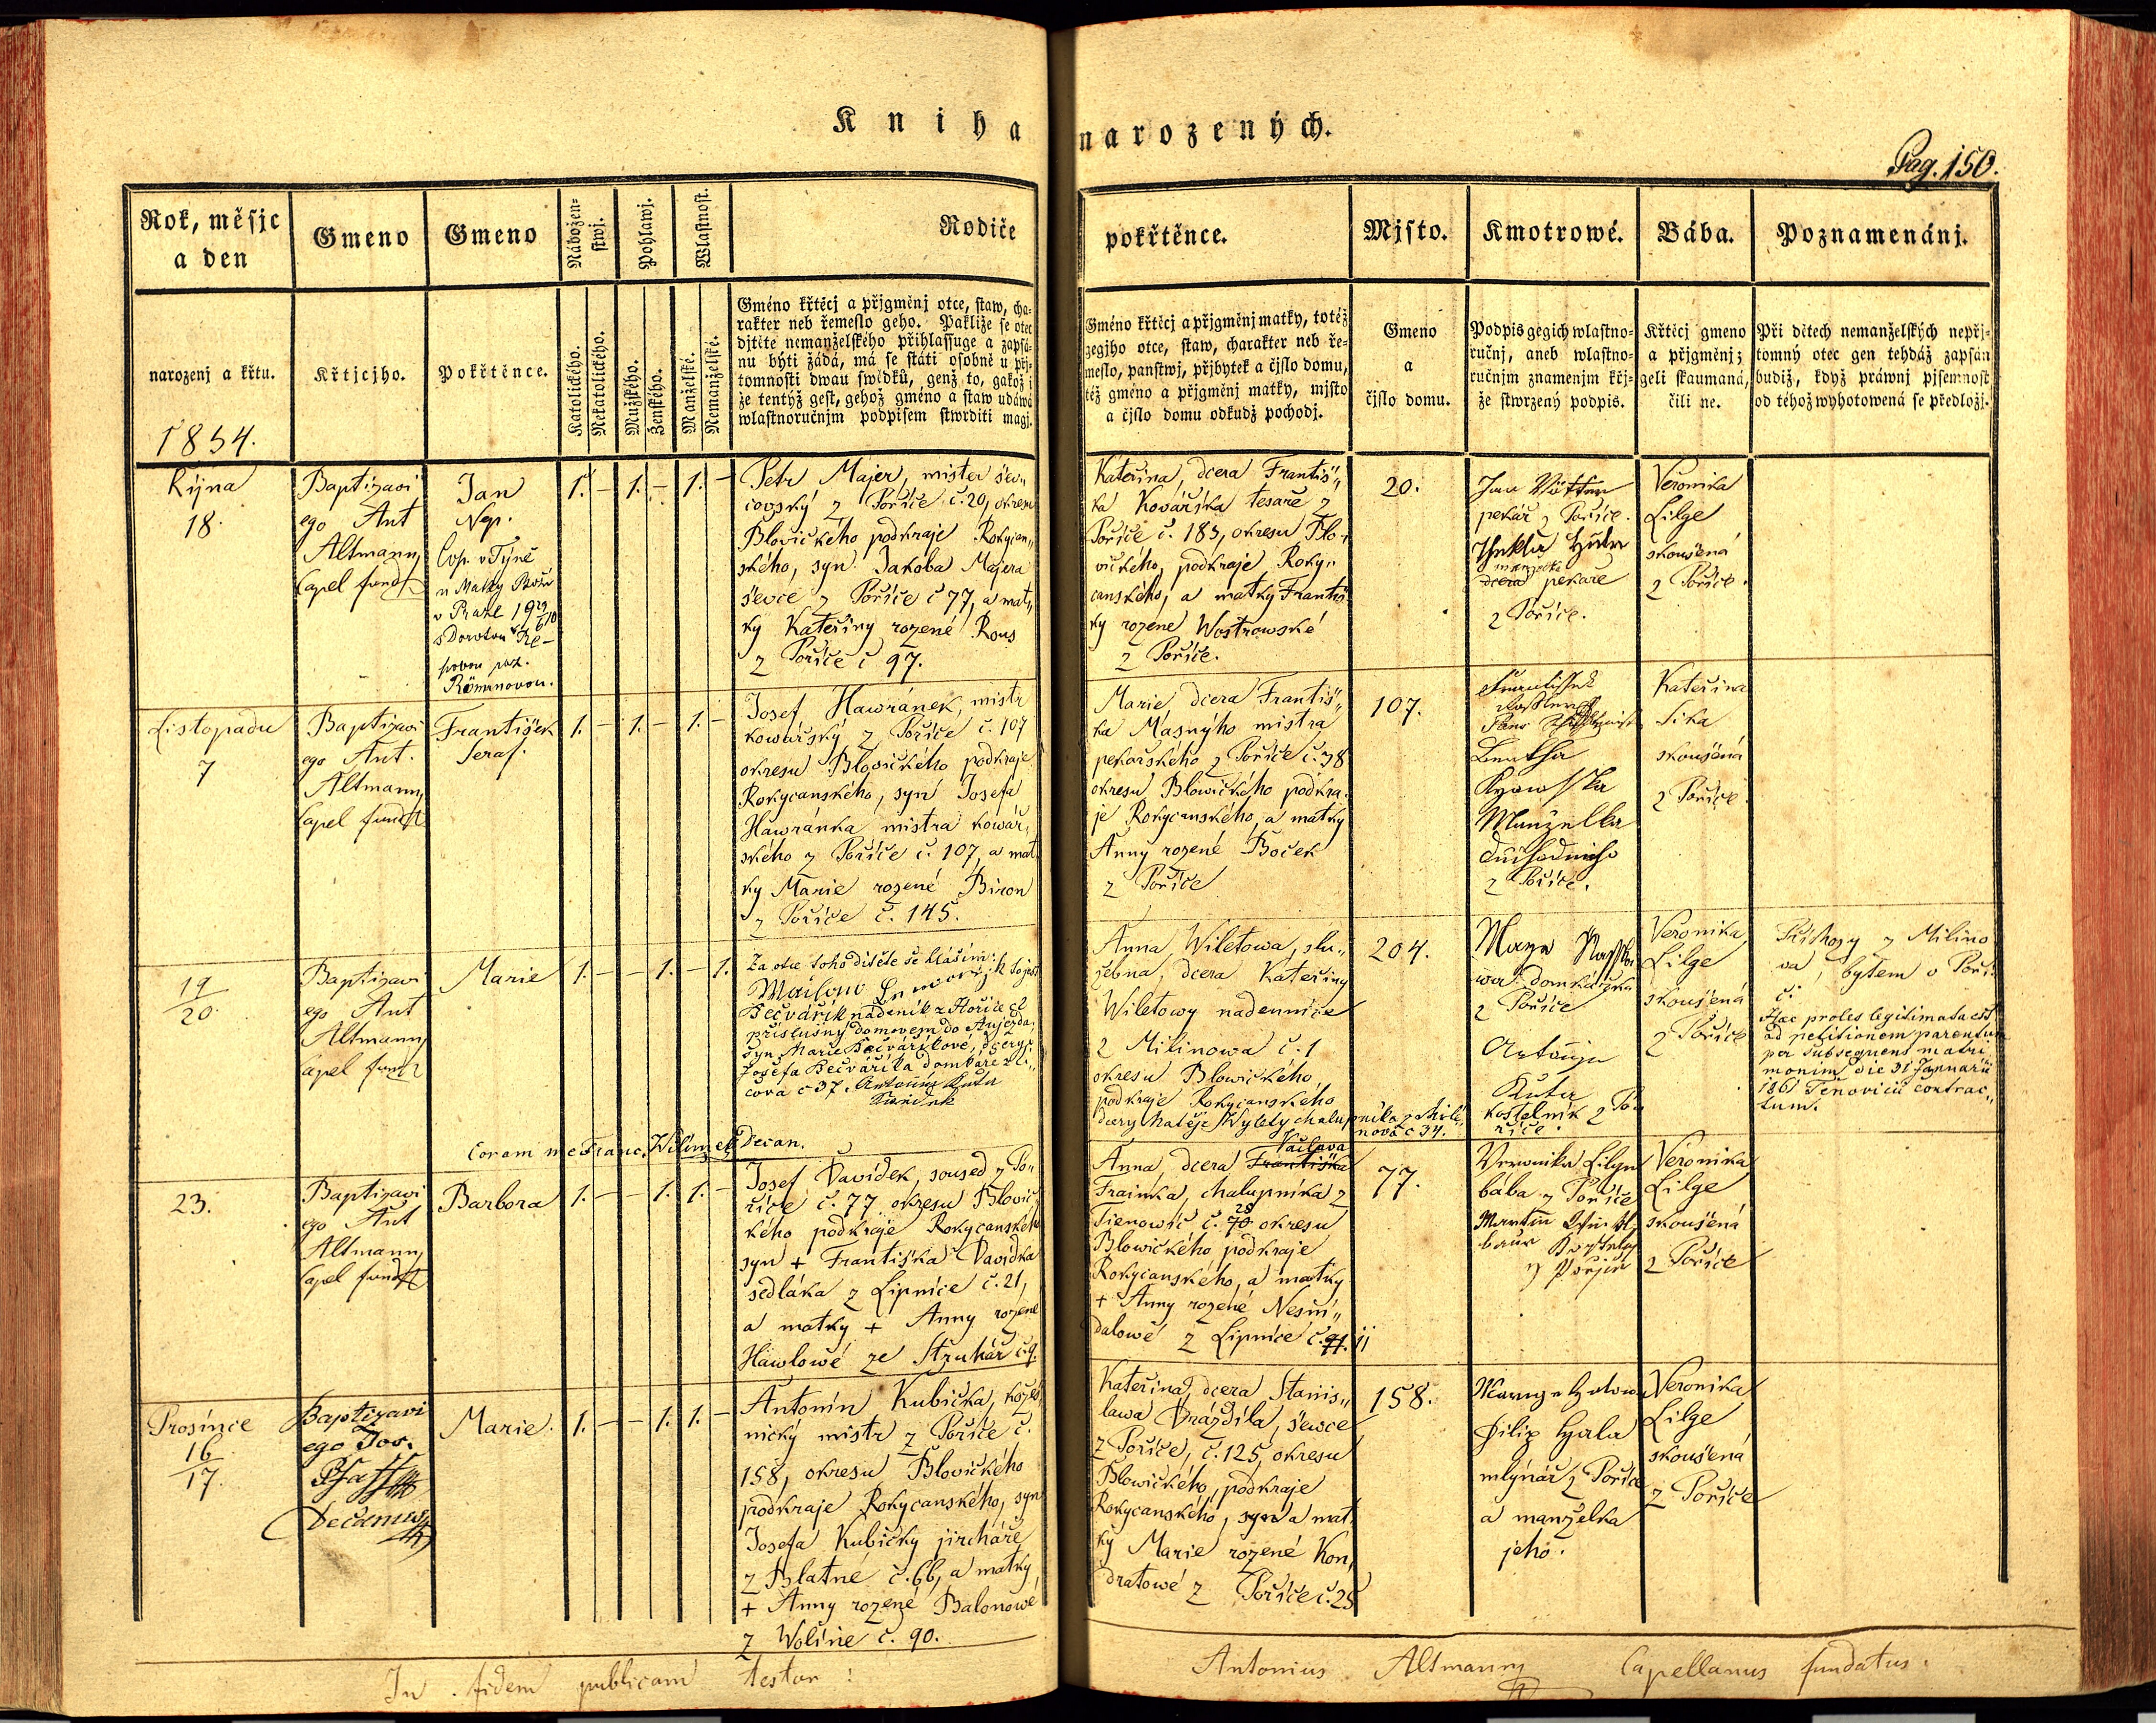 Kniha narozených.
Pag. 150.
Rok, měsjc
a den
Gmeno
Gmeno
Nábožen-
stwj.
Pohlawj.
Wlastnost.
Rodiče
pokřtěnce.
Mjsto.
Kmotrowé.
Bába.
Poznamenánj.
narozenj a křtu.
1854.
Křtjcjho.
Pokřtěnce.
Katolického.
Nekatolického.
Mužského.
Ženského.
Manželské.
Nemanželské.
Gméno křtěcj a přjgměnj otce, staw, cha-
rakter neb řemeslo geho. Pakliže se otec
djtěte nemanželského přihlassuge a zapsá-
nu býti žádá, má se státi osobně u přj-
tomnosti dwau swědků, genž to, gakož i
že tentýž gest, gehož gméno a staw udáwá
wlastnoručnjm podpisem stwrditi magj.
Gméno křtěcj a přjgměnj matky, totéž
gegjho otce, staw, charakter neb ře-
meslo, panstwj, přjbytek a čjslo domu,
též gméno a přjgměnj matky, mjsto
a čjslo domu odkudž pochodj.
Gmeno
a
čjslo domu.
Podpis gegich wlastno-
ručnj, aneb wlastno-
ručnjm znamenjm křj-
že stwrzený podpis.
Křtěcj gmeno
a přjgměnj;
geli skaumaná,
čili ne.
Při dětech nemanželských nepřj-
tomný otec gen tehdáž zapsán
budiž, když práwnj pjsemnost
od téhož wyhotowená se předložj.
Řijna
18.
Baptizavi
ego Ant
Altmann
Capel fundt
Jan
Nep.
Cop. v Týně
u Matky Boží
v Praze
s Dorotou
Römrnovou.
1. – 1. – 1. –
Petr Majer, mister šew„
covský z Pořiče, č. 20, okresu
Blovického podkraje Rokycan„
ského, syn Jakoba Majera
ševce z Pořiče č 77, a mat„
ky Kateřiny rozené Rous
z Pořiče č 97.
Kateřina, dcera Františ„
ka Kovářika tesaře z
Pořiče č. 183, okresu Blo„
vického, podkraje Roky„
canského, a matky Františ
ky rozene Wostrowské
z Pořiče.
20.
Jan
pekář z Pořiče.
Thekla
manželka
dcera pekaře
z Pořiče.
Veronika
Lilge
skoušená
z Pořiče.
Listopadu
7
Baptizavi
ego Ant.
Altmann
Capel fundt
František
Seraf.
1. – 1. – 1. –
Josef Hawránek, mistr
kowářský z Pořiče č. 107
okresu Blovického podkraje
Rokycanského, syn Josefa
Hawránka mistra kowář„
ského z Pořiče č. 107, a mat
ky Marie rozené Biron
z Pořiče č. 145.
Marie, dcera Františ„
ka Masnýho mistra
pekařského z Pořiče č. 38
okresu Blowického podkra„
je Rokycanského, a matky
Anny rozené Boček
z Pořiče
107.
Manželka
z Pořiče.
Kateřina
Sika
skoušená
z Pořiče.
19
20.
Baptizavi
ego Ant
Altmann
Capel fundt
Marie
1. – – 1. – 1.
Za otce toho dítěte se hlásím:
Bečvářik nadeník z Hořic č2
příslušný domovem do Aujezda,
syn Marie Bečvářikové, dcery
Josefa Bečvářika domkáře z Li„
cova č 37. Antonin Kuta
Swědek
Coram me Franc. Wilimek Decan.
Anna Wiletowa, slu„
žebna, dcera Kateřiny
Wiletowy nadennice
z Milinowa č. 1
okresu Blowického
podkraje Rokycanského
dcery Matěje Wylety chalupnika z Mili
nova č 34.
204.
domkářka
z Pořiče
Antonin
Kuta
kostelnik z Po„
řiče.
Veronika
Lilge
skoušená
z Pořiče
z Milino
va, bytem v Poři„
či
Haec proles legitimata est
ad petitionem parentum
per subsequens matri„
monium die 31 Januarii
1861 Tenovicii contrac„
tum.
23.
Baptizavi
ego Ant
Altmann
Capel fundt
Barbora
1. – – 1. 1. –
Josef Davídek, soused z Po„
řiče č. 77 okresu Blovic
kého podkraje Rokycanského
syn + Františka Davidka
sedláka z Lipnice č. 21,
a matky + Anny rozené
Hawlowé ze Struhář č. 9.
Anna, dcera Františka Václava
Frainka, chalupníka z
Tienowic č. 70 28 okresu
Blowického podkraje
Rokycanského, a matky
+ Anny rozené Nesmi„
dalowé z Lipnice č. 91. 11
77.
Veronika Lilge
bába z Pořiče
Martin
Veronika
Lilge
skoušená
z Pořiče
Prosince
16
17.
Baptizavi
ego Jos.
Pfaff
Decanus
Marie.
1. – – 1. 1. –
Antonín Kubička, kožeš„
nický mistr z Pořiče č.
158, okresu Blovického
podkraje Rokycanského, syn
Josefa Kubičky jircháře
z Blatné č. 66, a matky
+ Anny rozené Balonowé
z Wolině č. 90.
Kateřina, dcera Stanis„
lawa Drázdila, ševce
z Pořiče, č. 125, okresu
Blowického, podkraje
Rokycanského, syn a mat„
ky Marie rozené Kon„
dratowé z Pořiče č. 25
158.
Filip Hala
mlynář z Pořiče
a manželka
jeho.
Veronika
Lilge
skoušená
z Pořiče
In fidem publicam testor: Antonius Altmann Capellanus fundatus.